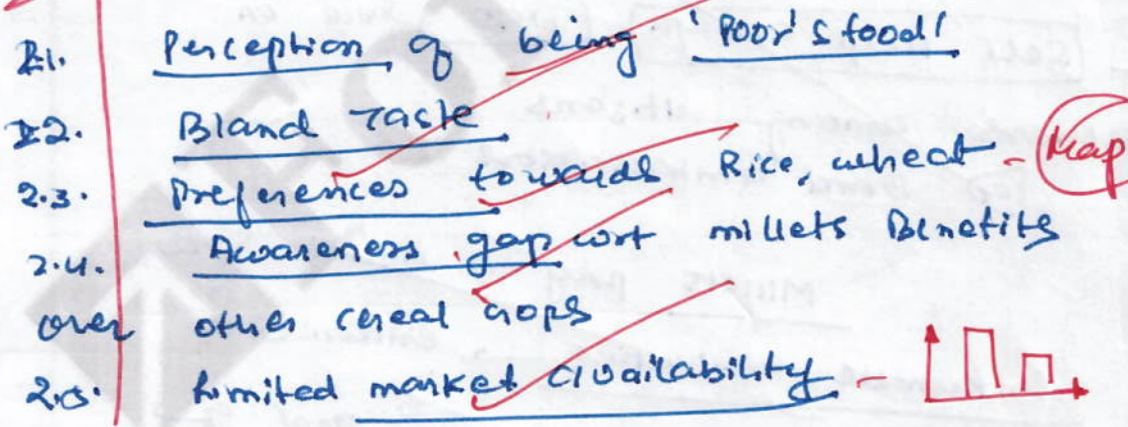 2.1. Perception of being 'Poor's food'
2.2. Bland Taste
2.3. Preferences towards Rice, wheat - Map
2.4. Awareness gap wrt millets Benefits
over other cereal crops
2.5. Limited market availability -